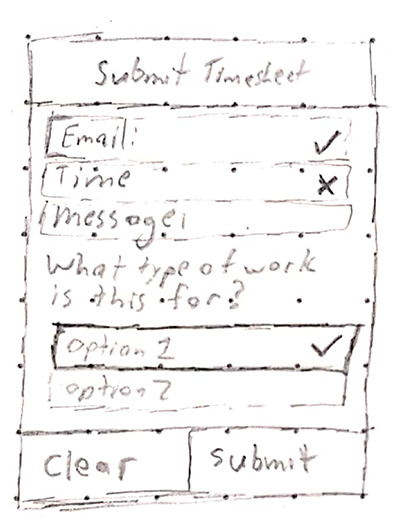 Submit Timesheet
Email:
Time
Message:
What type of work
is this for?
option 1
option 2
Clear
Submit